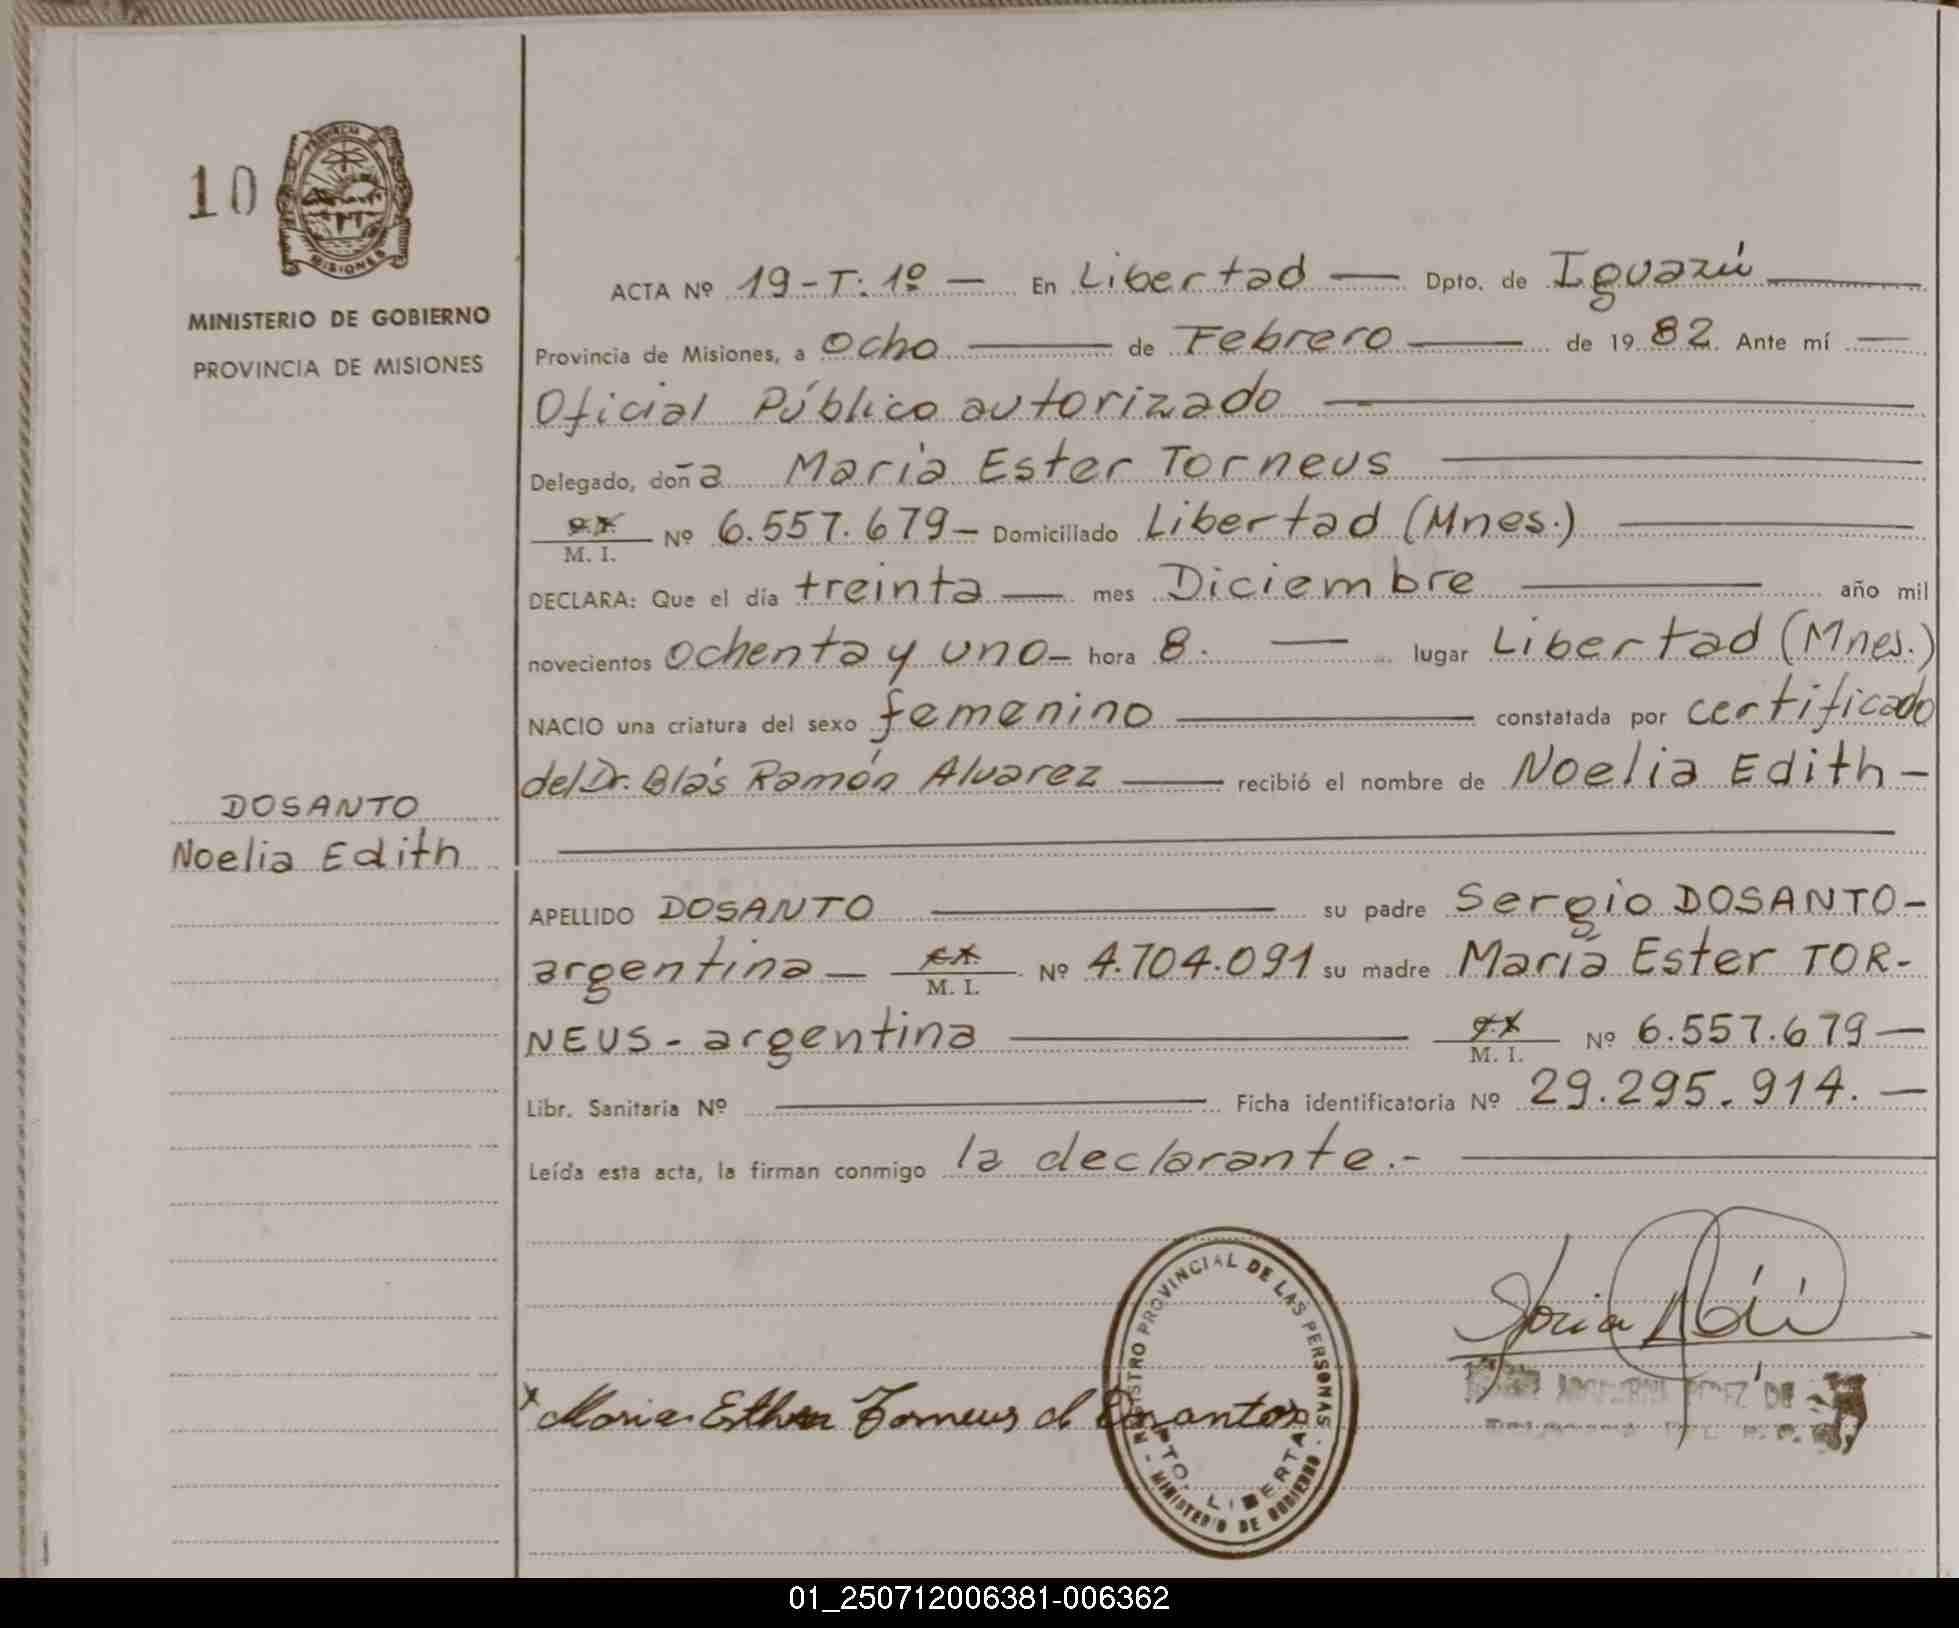 10
PROVINCIA DE
MISIONES
MINISTERIO DE GOBIERNO
PROVINCIA DE MISIONES
DOSANTO
Noelia Edith
ACTA Nº 19-T. 1º — En Libertad — Dpto. de Iguazú
Provincia de Misiones, a ocho — de Febrero — de 1982. Ante mí —
Oficial Público autorizado
Delegado, doña María Ester Torneus
M. I. Nº 6.557.679 - Domiciliado Libertad (Mnes.)
DECLARA: Que el día treinta — mes Diciembre — año mil
novecientos ochenta y uno - hora 8. — lugar Libertad (Mnes.)
NACIO una criatura del sexo femenino — constatada por certificado
del Dr. Blás Ramón Alvarez — recibió el nombre de Noelia Edith -
APELLIDO DOSANTO — su padre Sergio DOSANTO -
argentina — M. I. Nº 4.704.091 su madre María Ester TOR-
NEUS - argentina — M. I. Nº 6.557.679 —
Libr. Sanitaria Nº — Ficha identificatoria Nº 29.295.914. —
Leída esta acta, la firman conmigo la declarante.-
x Maria Esther Torneus d Dosantos
REGISTRO PROVINCIAL DE LAS PERSONAS
- MINISTERIO DE GOBIERNO -
DPTO. LIBERTAD
DE
01_250712006381-006362